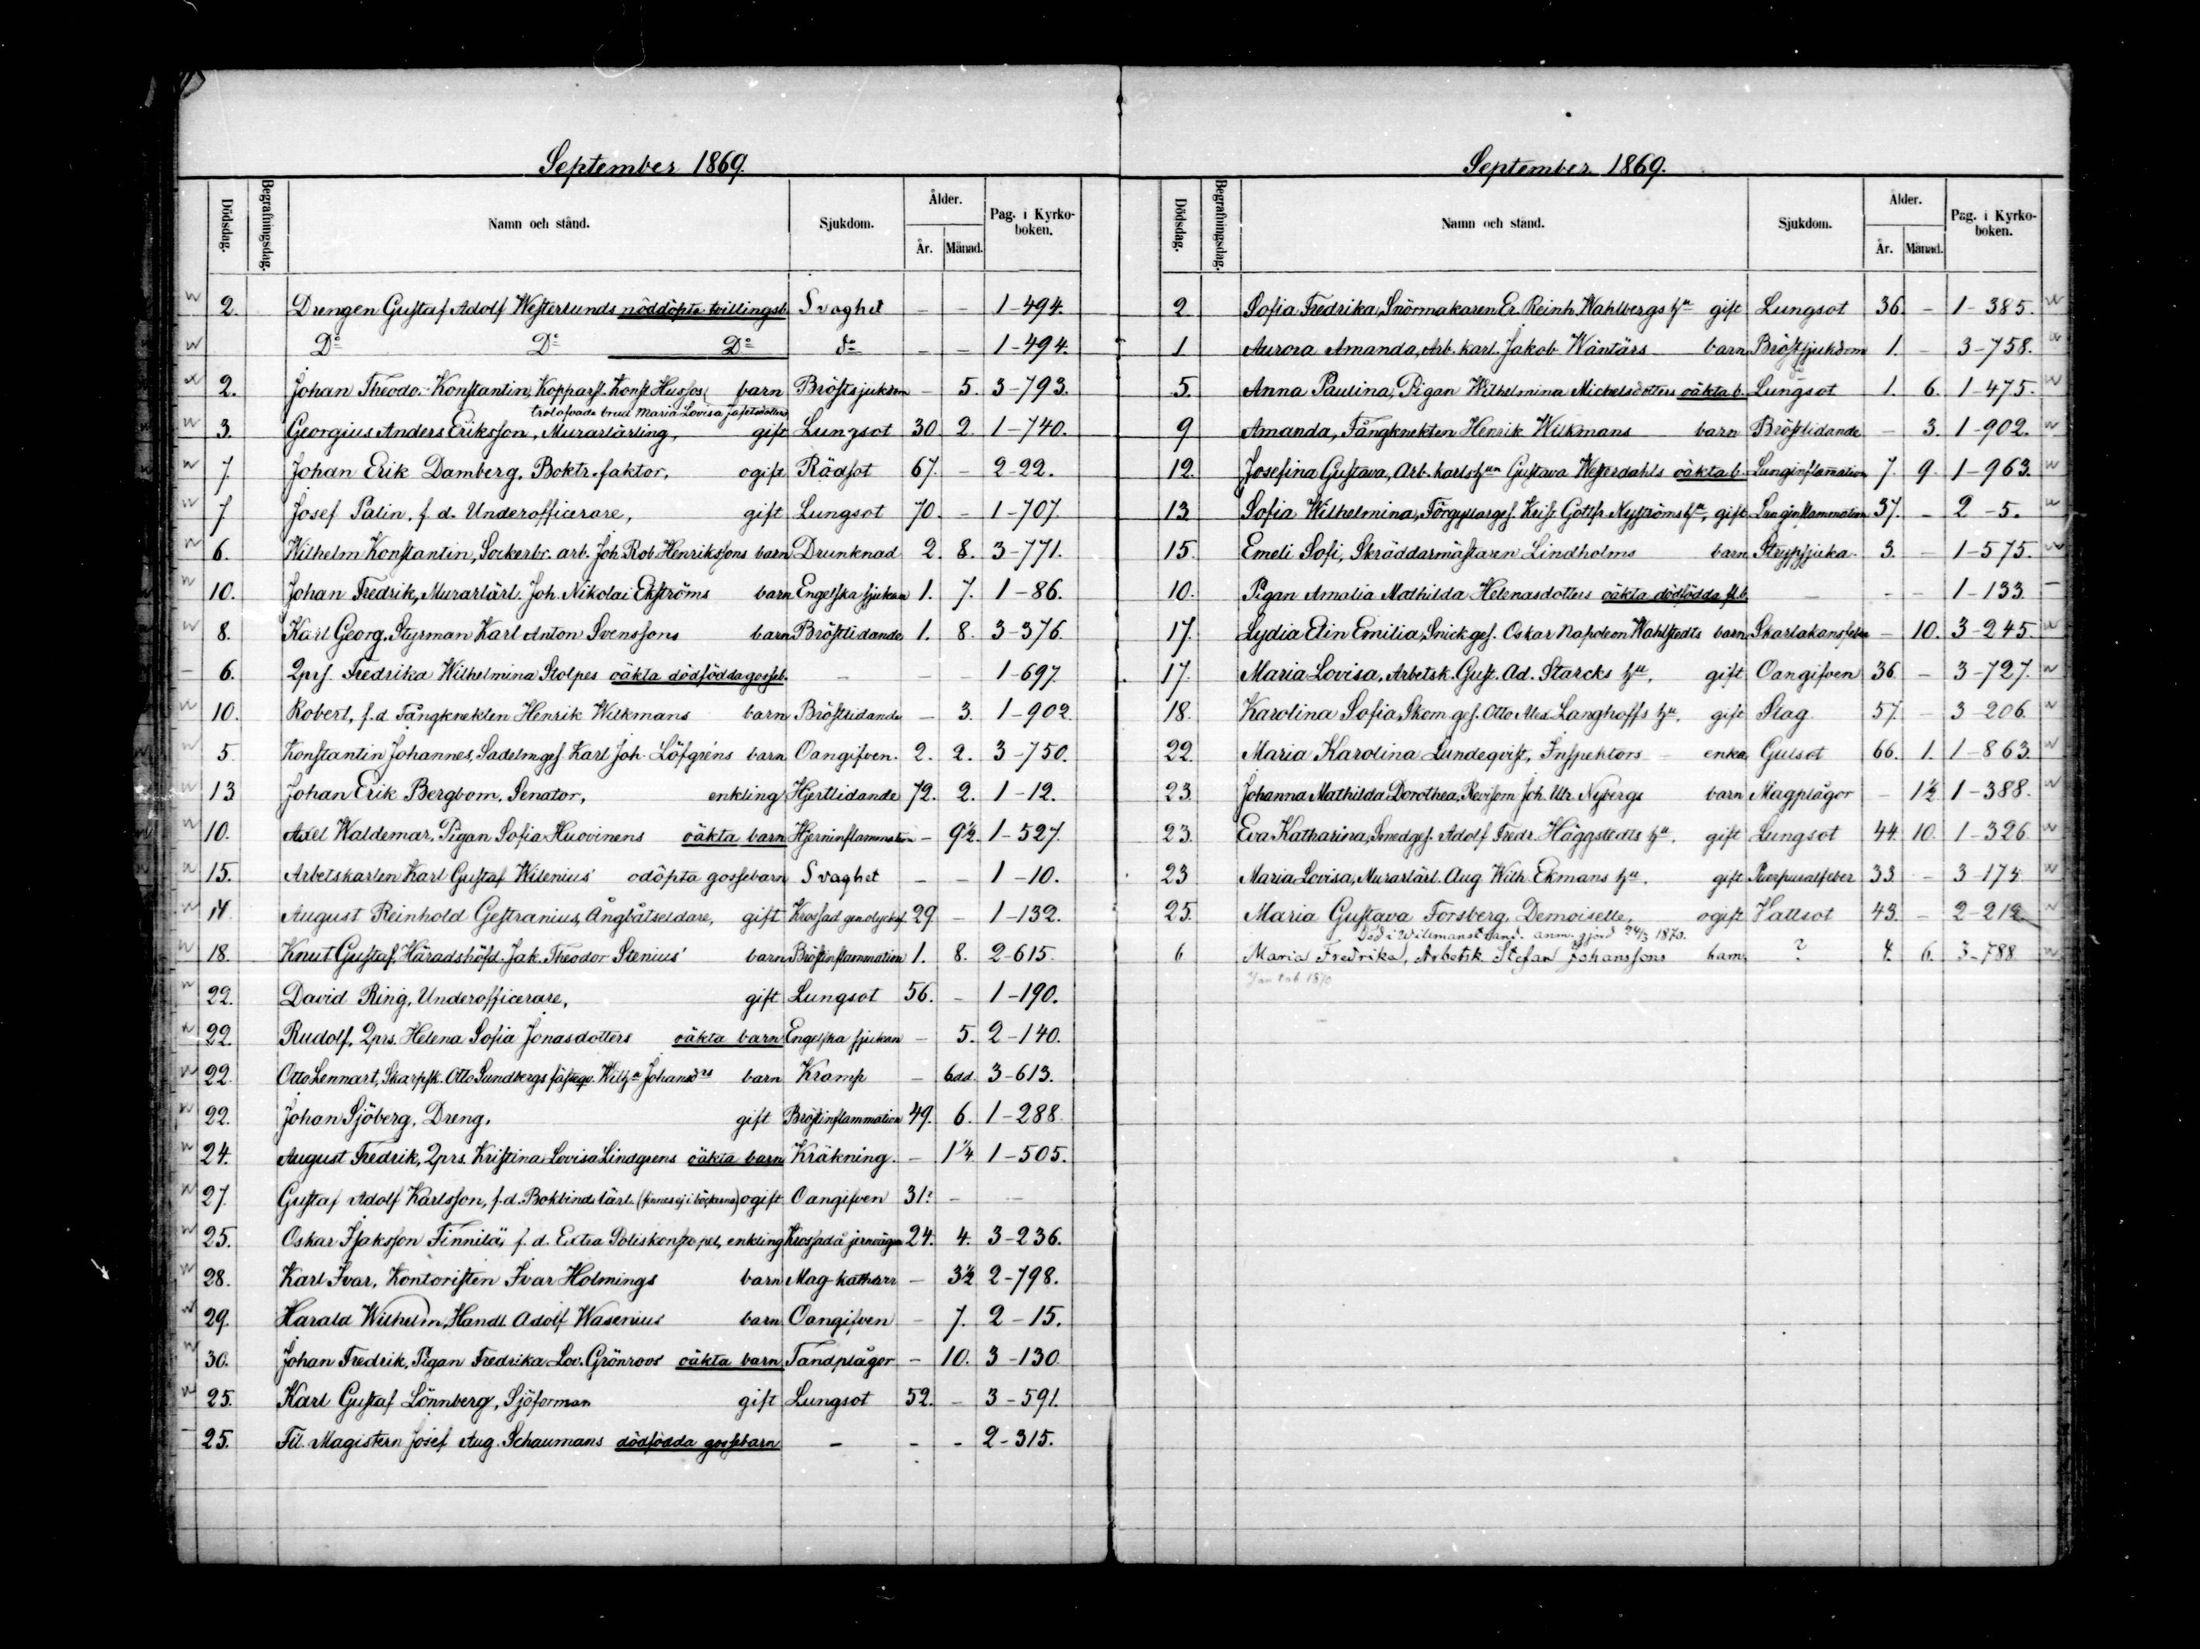 September 1869.
Dödsdag. Begrafningsdag. Namn och stånd. Sjukdom. Ålder. År. Månad. Pag. i Kyrko-boken.
2. Drengen Gustaf Adolf Westerlunds nöddöpta tvillingsb. Svaghet - - 1-494.
Do Do Do do - - 1-494.
2. Johan Theodor Konstantin, Kopparsl. Konst. Hussos barn Bröstsjukdom - 5. 3-793.
trolofvade brud Maria Lovisa Jafetsdotter
3. Georgius Anders Eriksson, Murarlärling, gift Lungsot 30 2. 1-740.
7. Johan Erik Damberg, Boktr. faktor, ogift Rödsot 67. - 2-22.
7 Josef Palin, f. d. Underofficerare, gift Lungsot 70. - 1-707.
6. Wilhelm Konstantin, Sockerbr. arb. Joh. Rob. Henrikssons barn Drunknad 2. 8. 3-771.
10. Johan Fredrik, Murarlärl. Joh. Nikolai Ekströms barn Engelska sjukan 1. 7. 1-86.
8. Karl Georg, Styrman Karl Anton Svenssons barn Bröstlidande 1. 8. 3-376.
6. Qprs. Fredrika Wilhelmina Stolpes oäkta dödfödda gosseb. - - - 1-697.
10. Robert, f. d. Fångknekten Henrik Wilkmans barn Bröstlidande - 3. 1-902.
5 Konstantin Johannes, Sadelm.ges. Karl Joh. Löfgrens barn Oangifven. 2. 2. 3-750.
13 Johan Erik Bergbom, Senator, enkling Hjertlidande 72. 2. 1-12.
10. Axel Waldemar, Pigan Sofia Huovinens oäkta barn Hjerninflammation - 9½. 1-527.
15. Arbetskarlen Karl Gustaf Wilenius' odöpta gossebarn Svaghet - - 1-10.
14. August Reinhold Gestranius, Ångbåtseldare, gift Krossad gen. olycksf. 29. - 1-132.
18. Knut Gustaf, Häradshöfd. Jak. Theodor Stenius' barn Bröstinflammation 1. 8. 2-615.
22. David Ring, Underofficerare, gift Lungsot 56. - 1-190.
22. Rudolf, Qprs. Helena Sofia Jonasdotters oäkta barn Engelska sjukan - 5. 2-140.
22. Otto Lennart, Skarpsk. Otto Sundbergs fästeqv. Wilha Johansdrs barn Kramp - 6 dd. 3-613.
22. Johan Sjöberg, Dreng, gift Bröstinflammation 49. 6. 1-288.
24. August Fredrik, Qprs. Kristina Lovisa Lindgrens oäkta barn Kräkning. - 1¼ 1-505.
27. Gustaf Adolf Karlsson, f. d. Bokbind. lärl. (finnes ej i böckerna) ogift Oangifven 31? - -
25. Oskar Isaksson Finnilä, f. d. Extra Poliskonstapel, enkling Krossad å jernvägen 24. 4. 3-236.
28. Karl Ivar, Kontoristen Ivar Holmings barn Mag-katharr - 3½ 2-798.
29. Harald Wilhelm, Handl. Adolf Wasenius' barn Oangifven - 7. 2-15.
30. Johan Fredrik, Pigan Fredrika Lov. Grönroos' oäkta barn Tandplågor - 10. 3-130
25. Karl Gustaf Lönnberg, Sjöforman gift Lungsot 52. - 3-591.
25. Fil. Magistern Josef Aug. Schaumans dödfödda gossebarn - - - 2-315.
September 1869.
Dödsdag. Begrafningsdag. Namn och stånd. Sjukdom. Ålder. År. Månad. Pag. i Kyrko-boken.
2 Sofia Fredrika, Snörmakaren Er. Reinh. Wahlbergs hu gift Lungsot 36. - 1-385.
1 Aurora Amanda, Arb. karl. Jakob Wäntärs barn Bröstsjukdom 1. - 3-758.
5. Anna Paulina, Pigan Wilhelmina Michelsdotters oäkta b. Lungsot 1. 6. 1-475.
9 Amanda, Fångknekten Henrik Wilkmans barn Bröstlidande - 3. 1-902.
12. Josefina Gustava, Arb. karls hun Gustava Westerdahls oäkta b. Lunginflammation 7. 9. 1-963.
13 Sofia Wilhelmina, Förgyllarges. Krist. Gottfr. Nyströms hu, gift Lunginflammation 37. - 2-5.
15. Emeli Sofi, Skräddarmästaren Lindholms barn Strypsjuka 3. - 1-575.
10. Pigan Amalia Mathilda Helenasdotters oäkta dödfödda fl.b. - - - 1-133
17. Lydia Elin Emilia, Snick.ges. Oskar Napoleon Wahlstedts barn Skarlakansfeber - 10. 3-245.
17. Maria Lovisa, Arbetsk. Gust. Ad. Starcks hu, gift Oangifven 36 - 3-727.
18. Karolina Sofia, Skom.ges. Otto Alex. Langhoffs hu, gift Slag 57. - 3-206.
22. Maria Karolina Lundeqvist, Inspektors enka Gulsot 66. 1. 1-863.
23. Johanna Mathilda Dorothea, Revisorn Joh. Ulr. Nybergs barn Magplågor - 1½ 1-388.
23. Eva Katharina, Smedges. Adolf Fredr. Häggstedts hu, gift Lungsot 44. 10. 1-326.
23 Maria Lovisa, Murarlärl. Aug. Wilh. Ekmans hu, gift Puerperalfeber 33. - 3-174.
25. Maria Gustava Forsberg, Demoiselle, ogift Hallsot 43. - 2-212
Död i Willmanstrand. anm. gjord 24/3 1870.
6 Maria Fredrika, Arbetsk. Stefan Johanssons barn ? 4. 6. 3-788.
1870